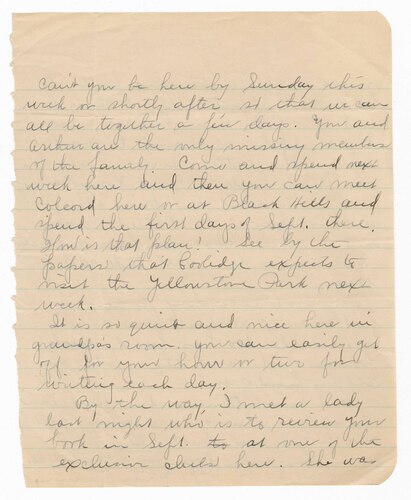 can't you be here by Sunday this
week or shortly after so that we can
all be together a few days. You and
Arthur are the only missing members
of the family. Come and spend next
week here and then you can meet
Colcord here or at Black Hills and
spend the first days of Sept. there.
How is that plan! See by the
papers that Coolidge expects to
visit the Yellowstone Park next
week.
It is so quiet and nice here in
grandpas room. you can easily get
off for your hour or two for
writing each day.
By the way, I met a lady
last night who is to review your
book in Sept. to at one of the
exclusive clubs here. She was